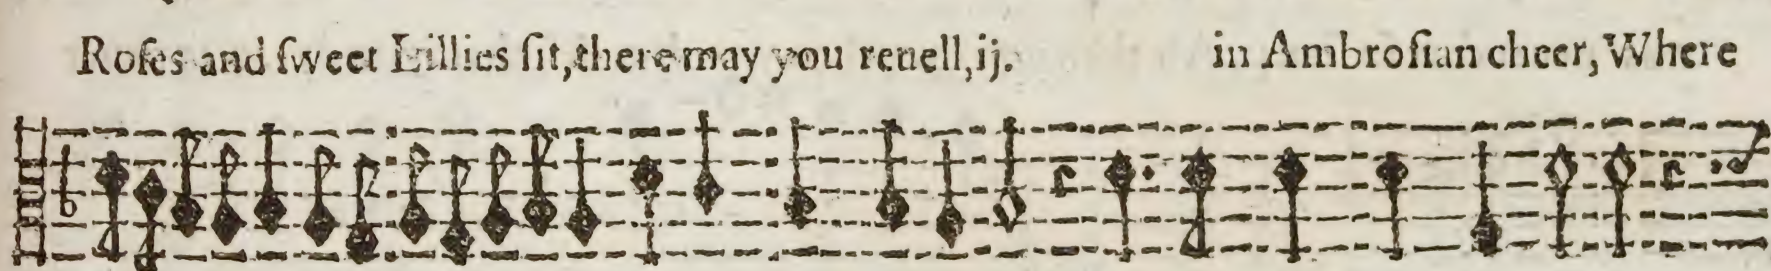 Roſes and ſweet Lillies ſit, there may you reuell, ij. in Ambroſian cheer, Where